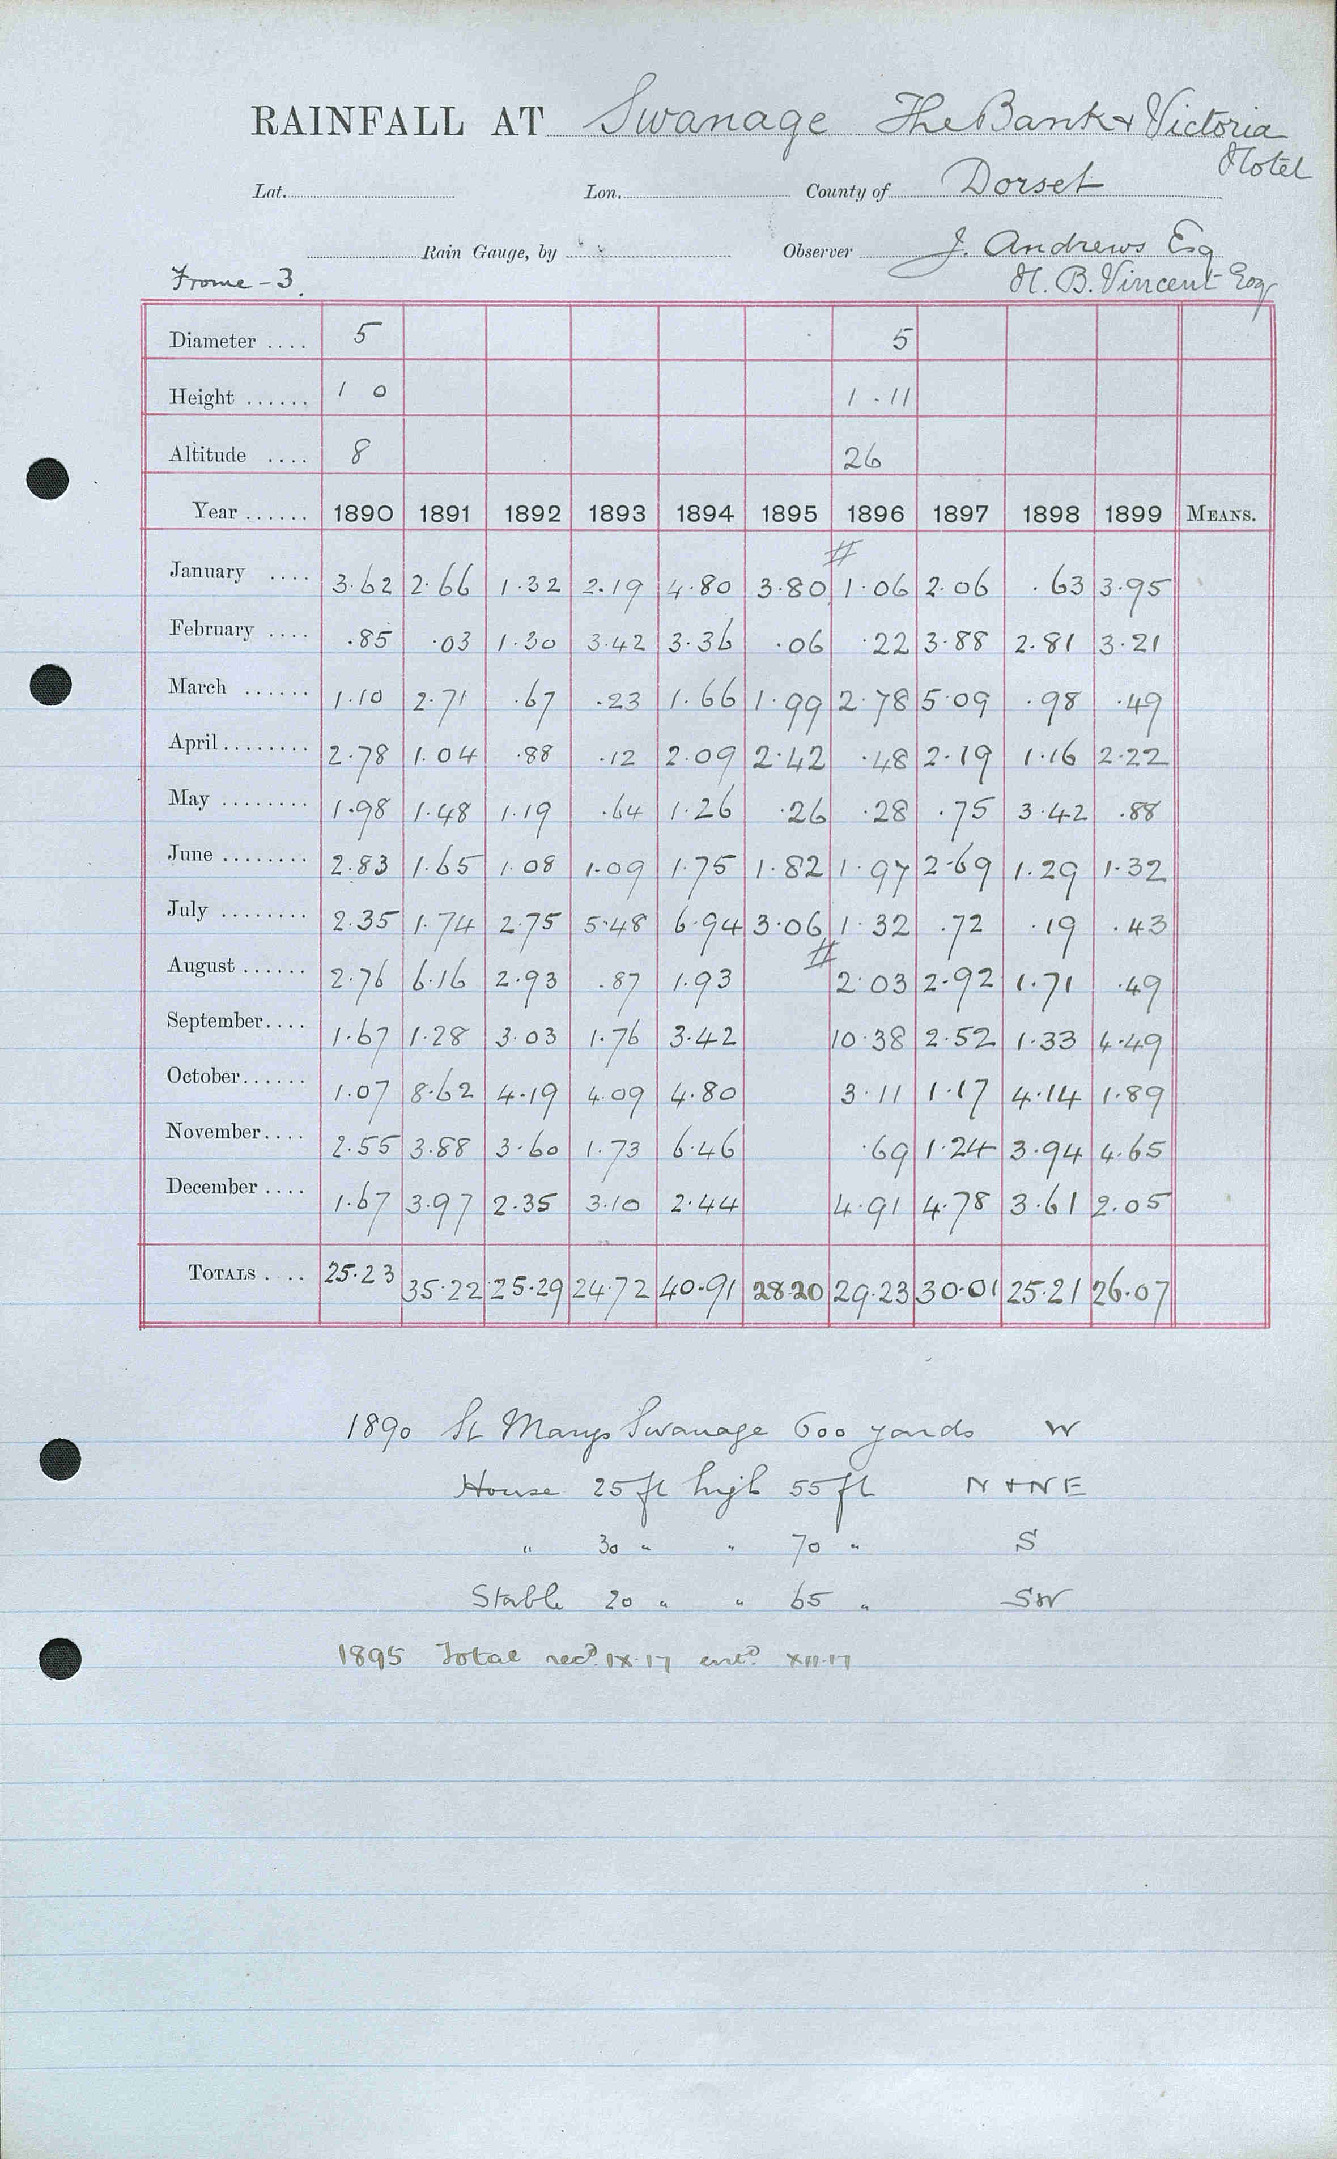 RAINFALL AT Swanage The Bank & Victoria
Hotel
Lat. Lon. County of Dorset
Rain Gauge, by Observer J. Andrews Esq
Frome - 3. H. B. Vincent Esq
Diameter .... 5 5
Height ...... 1 0 1 . 11
Altitude .... 8 26
Year ...... 1890 1891 1892 1893 1894 1895 1896 1897 1898 1899 MEANS.
#
January .... 3.62 2.66 1.32 2.19 4.80 3.80 1.06 2.06 .63 3.95
February .... .85 .03 1.30 3.42 3.36 .06 .22 3.88 2.81 3.21
March ...... 1.10 2.71 .67 .23 1.66 1.99 2.78 5.09 .98 .49
April ........ 2.78 1.04 .88 .12 2.09 2.42 .48 2.19 1.16 2.22
May ........ 1.98 1.48 1.19 .64 1.26 .26 .28 .75 3.42 .88
June ........ 2.83 1.65 1.08 1.09 1.75 1.82 1.97 2.69 1.29 1.32
July ........ 2.35 1.74 2.75 5.48 6.94 3.06 1.32 .72 .19 .43
#
August ...... 2.76 6.16 2.93 .87 1.93 2.03 2.92 1.71 .49
September.... 1.67 1.28 3.03 1.76 3.42 10.38 2.52 1.33 4.49
October...... 1.07 8.62 4.19 4.09 4.80 3.11 1.17 4.14 1.89
November.... 2.55 3.88 3.60 1.73 6.46 .69 1.24 3.94 4.65
December .... 1.67 3.97 2.35 3.10 2.44 4.91 4.78 3.61 2.05
TOTALS .... 25.23 35.22 25.29 24.72 40.91 28.20 29.23 30.01 25.21 26.07
1890 St Marys Swanage 600 yards W
House 25 ft high 55 ft N + NE
" 30 " " 70 " S
Stable 20 " " 65 " SW
1895 Total recd. IX.17 entd. XII.17